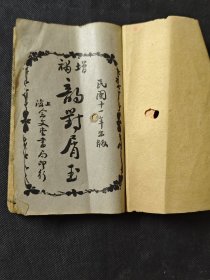 民國十一年出版
增補
韻對屑玉
上海會文堂書局印行